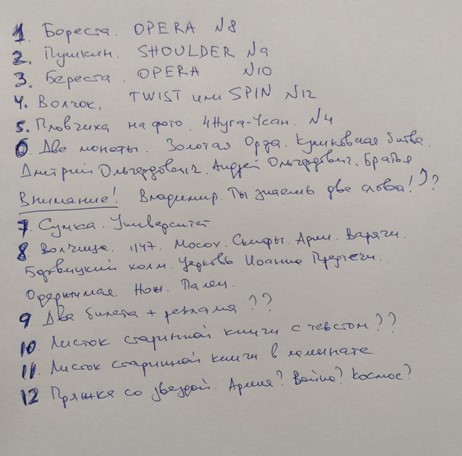 1. Береста. OPERA N8
2. Пушкин. SHOULDER N9
3. Береста. OPERA N10
4. Волчок. TWIST или SPIN N12
5. Пловчиха на фото. N4
6 Две монеты. Золотая Орда. Куликовская битва.
Дмитрий Ольгердович. Андрей Ольгердович. Братья
Внимание! Владимир. Ты знаешь два слова!??
7. Сумка. Университет
8 Волчица. 1147. Мосох. Скифы. Арии. Варяги.
Боровицкий холм. Церковь Иоанна Предтечи.
Одержимая. Нож. Палец.
9 Два билета + реклама ??
10. Листок старинной книги с текстом??
11. Листок старинной книги в ломинате
12 Пряжка со звездой. Армия? Война? Космос?